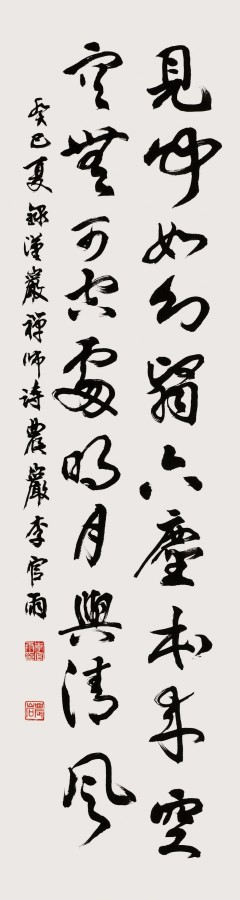 見聞如幻翳六塵本來空
空無可空處明月與清風
癸巳夏錄漢巖禪師詩農巖李官雨